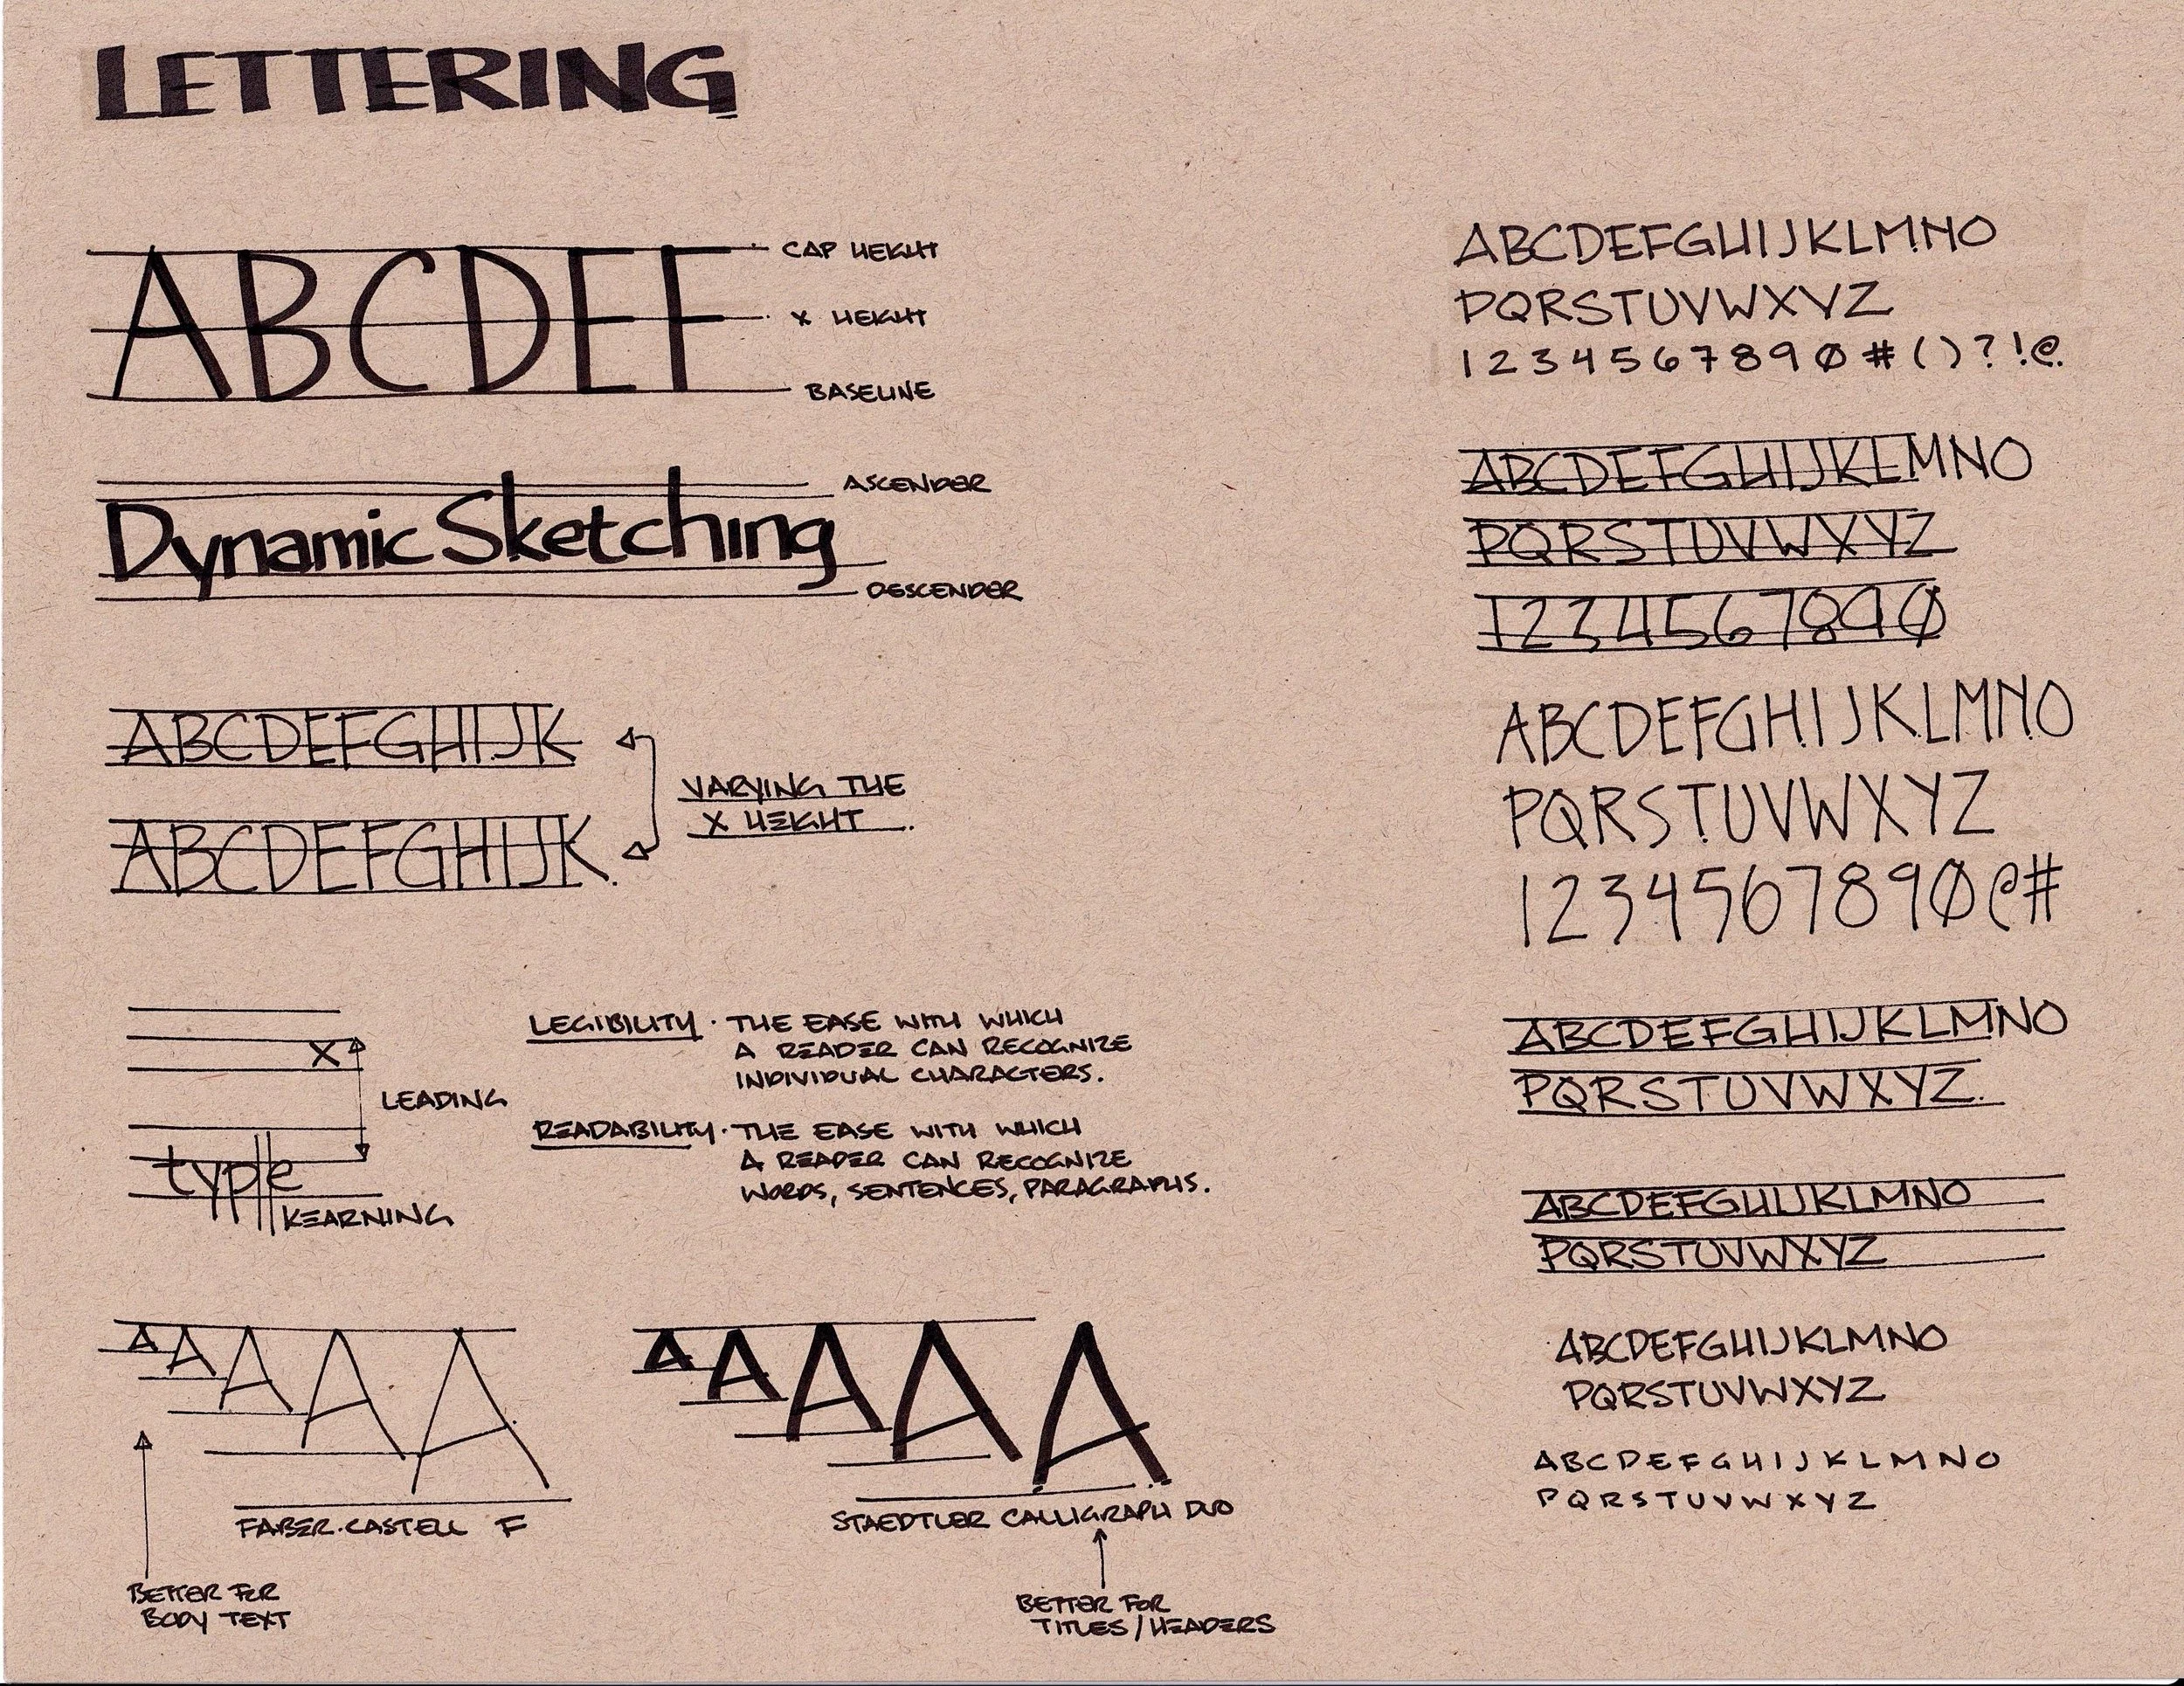 LETTERING
ABCDEF
CAP HEIGHT
X HEIGHT
BASELINE
Dynamic Sketching
ASCENDER
DESCENDER
ABCDEFGHIJK
ABCDEFGHIJK.
VARYING THE
X HEIGHT.
X
LEADING
type
KEARNING
LEGIBILITY · THE EASE WITH WHICH
A READER CAN RECOGNIZE
INDIVIDUAL CHARACTERS.
READABILITY · THE EASE WITH WHICH
A READER CAN RECOGNIZE
WORDS, SENTENCES, PARAGRAPHS.
A A A A A
FABER·CASTELL F
BETTER FOR
BODY TEXT
A A A A A
STAEDTLER CALLIGRAPH DUO
BETTER FOR
TITLES/HEADERS
ABCDEFGHIJKLMNO
PQRSTUVWXYZ
1 2 3 4 5 6 7 8 9 0 # ( ) ? ! @
ABCDEFGHIJKLMNO
PQRSTUVWXYZ
1234567890
ABCDEFGHIJKLMNO
PQRSTUVWXYZ
1234567890@#
ABCDEFGHIJKLMNO
PQRSTUVWXYZ.
ABCDEFGHIJKLMNO
PQRSTUVWXYZ
ABCDEFGHIJKLMNO
PQRSTUVWXYZ
A B C D E F G H I J K L M N O
P Q R S T U V W X Y Z